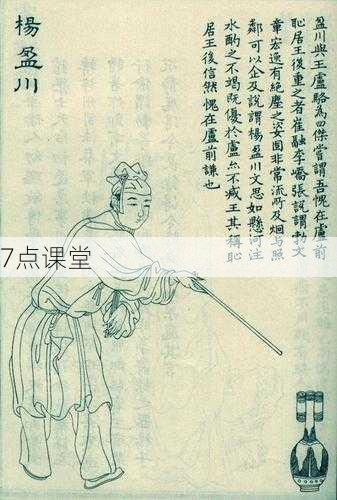 盈川與王盧駱為四傑嘗謂吾愧在盧前
恥居王後重之者崔融李嶠張說謂勃文
章宏逸有絕塵之姿固非常流所及烟与照
鄰可以企及說謂楊盈川文思如懸河注
水酌之不竭既優於盧亦不減王其稱恥
居王後信然愧在盧前謙也
楊盈川
7点课堂